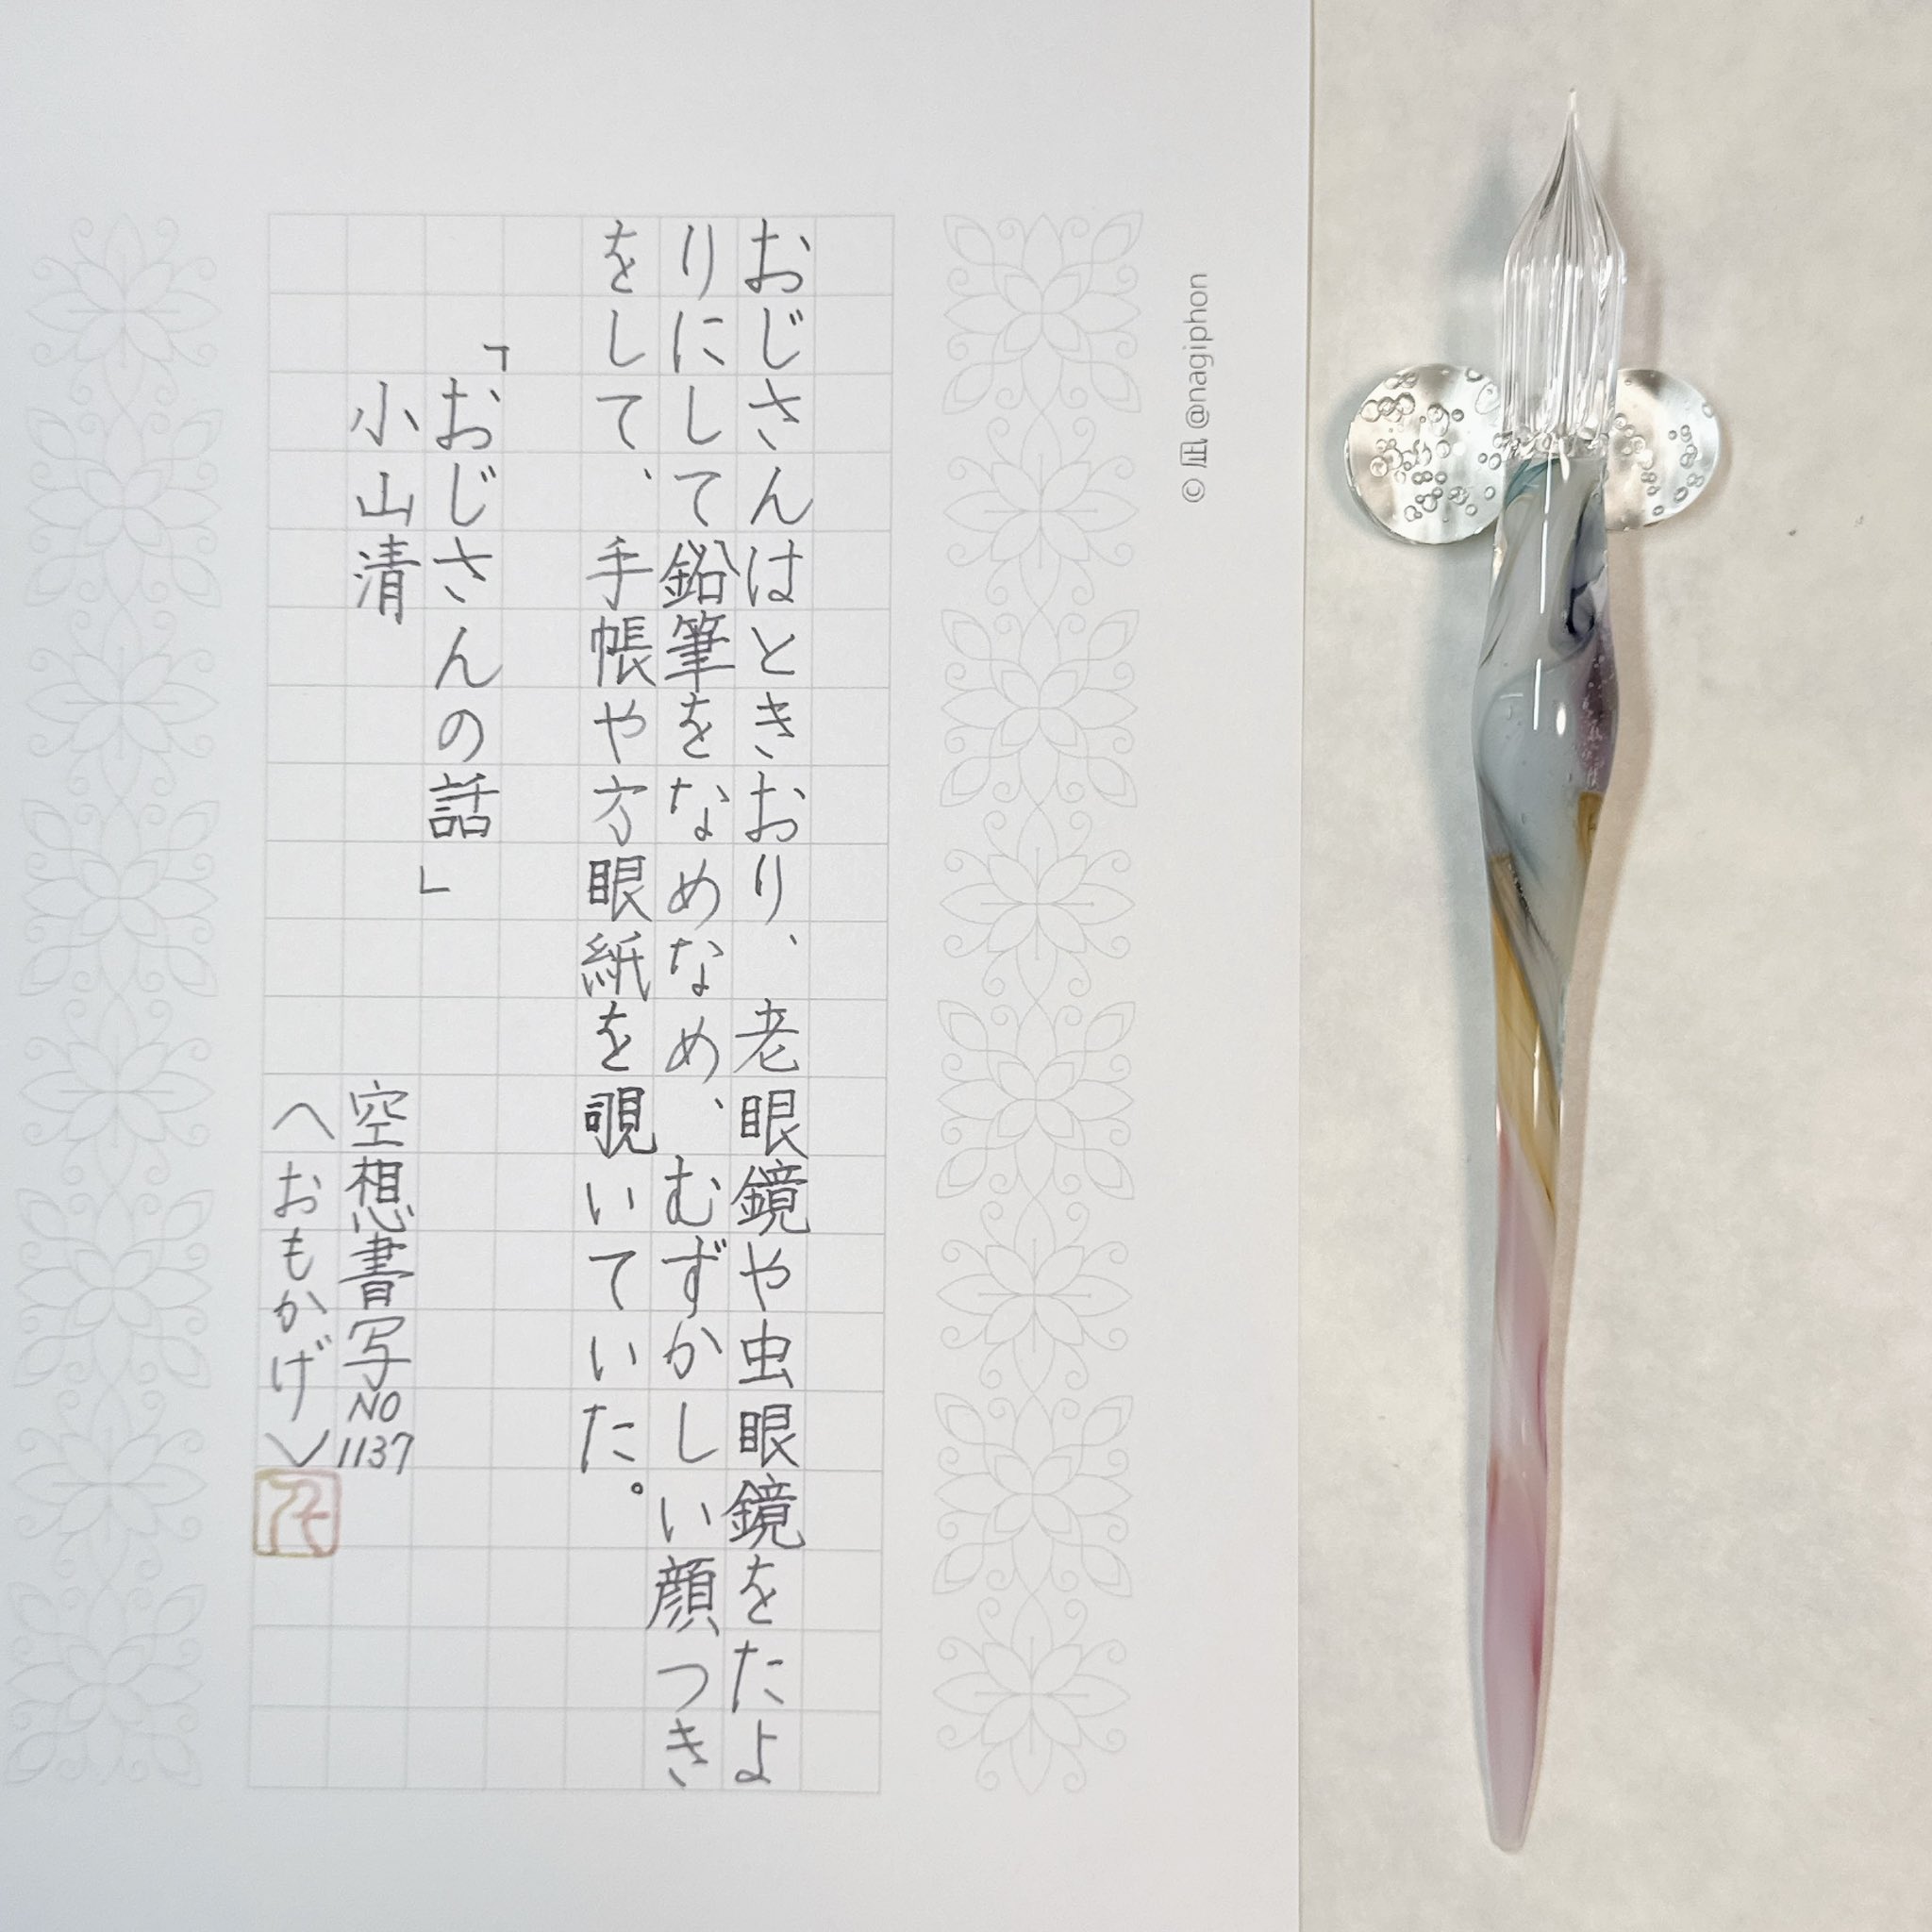 おじさんはときおり、老眼鏡や虫眼鏡をたよ
りにして鉛筆をなめなめ、むずかしい顔つき
をして、手帳や方眼紙を覗いていた。
「おじさんの話」
小山清
空想書写NO1137
〈おもかげ〉
© 凪 @nagiphon